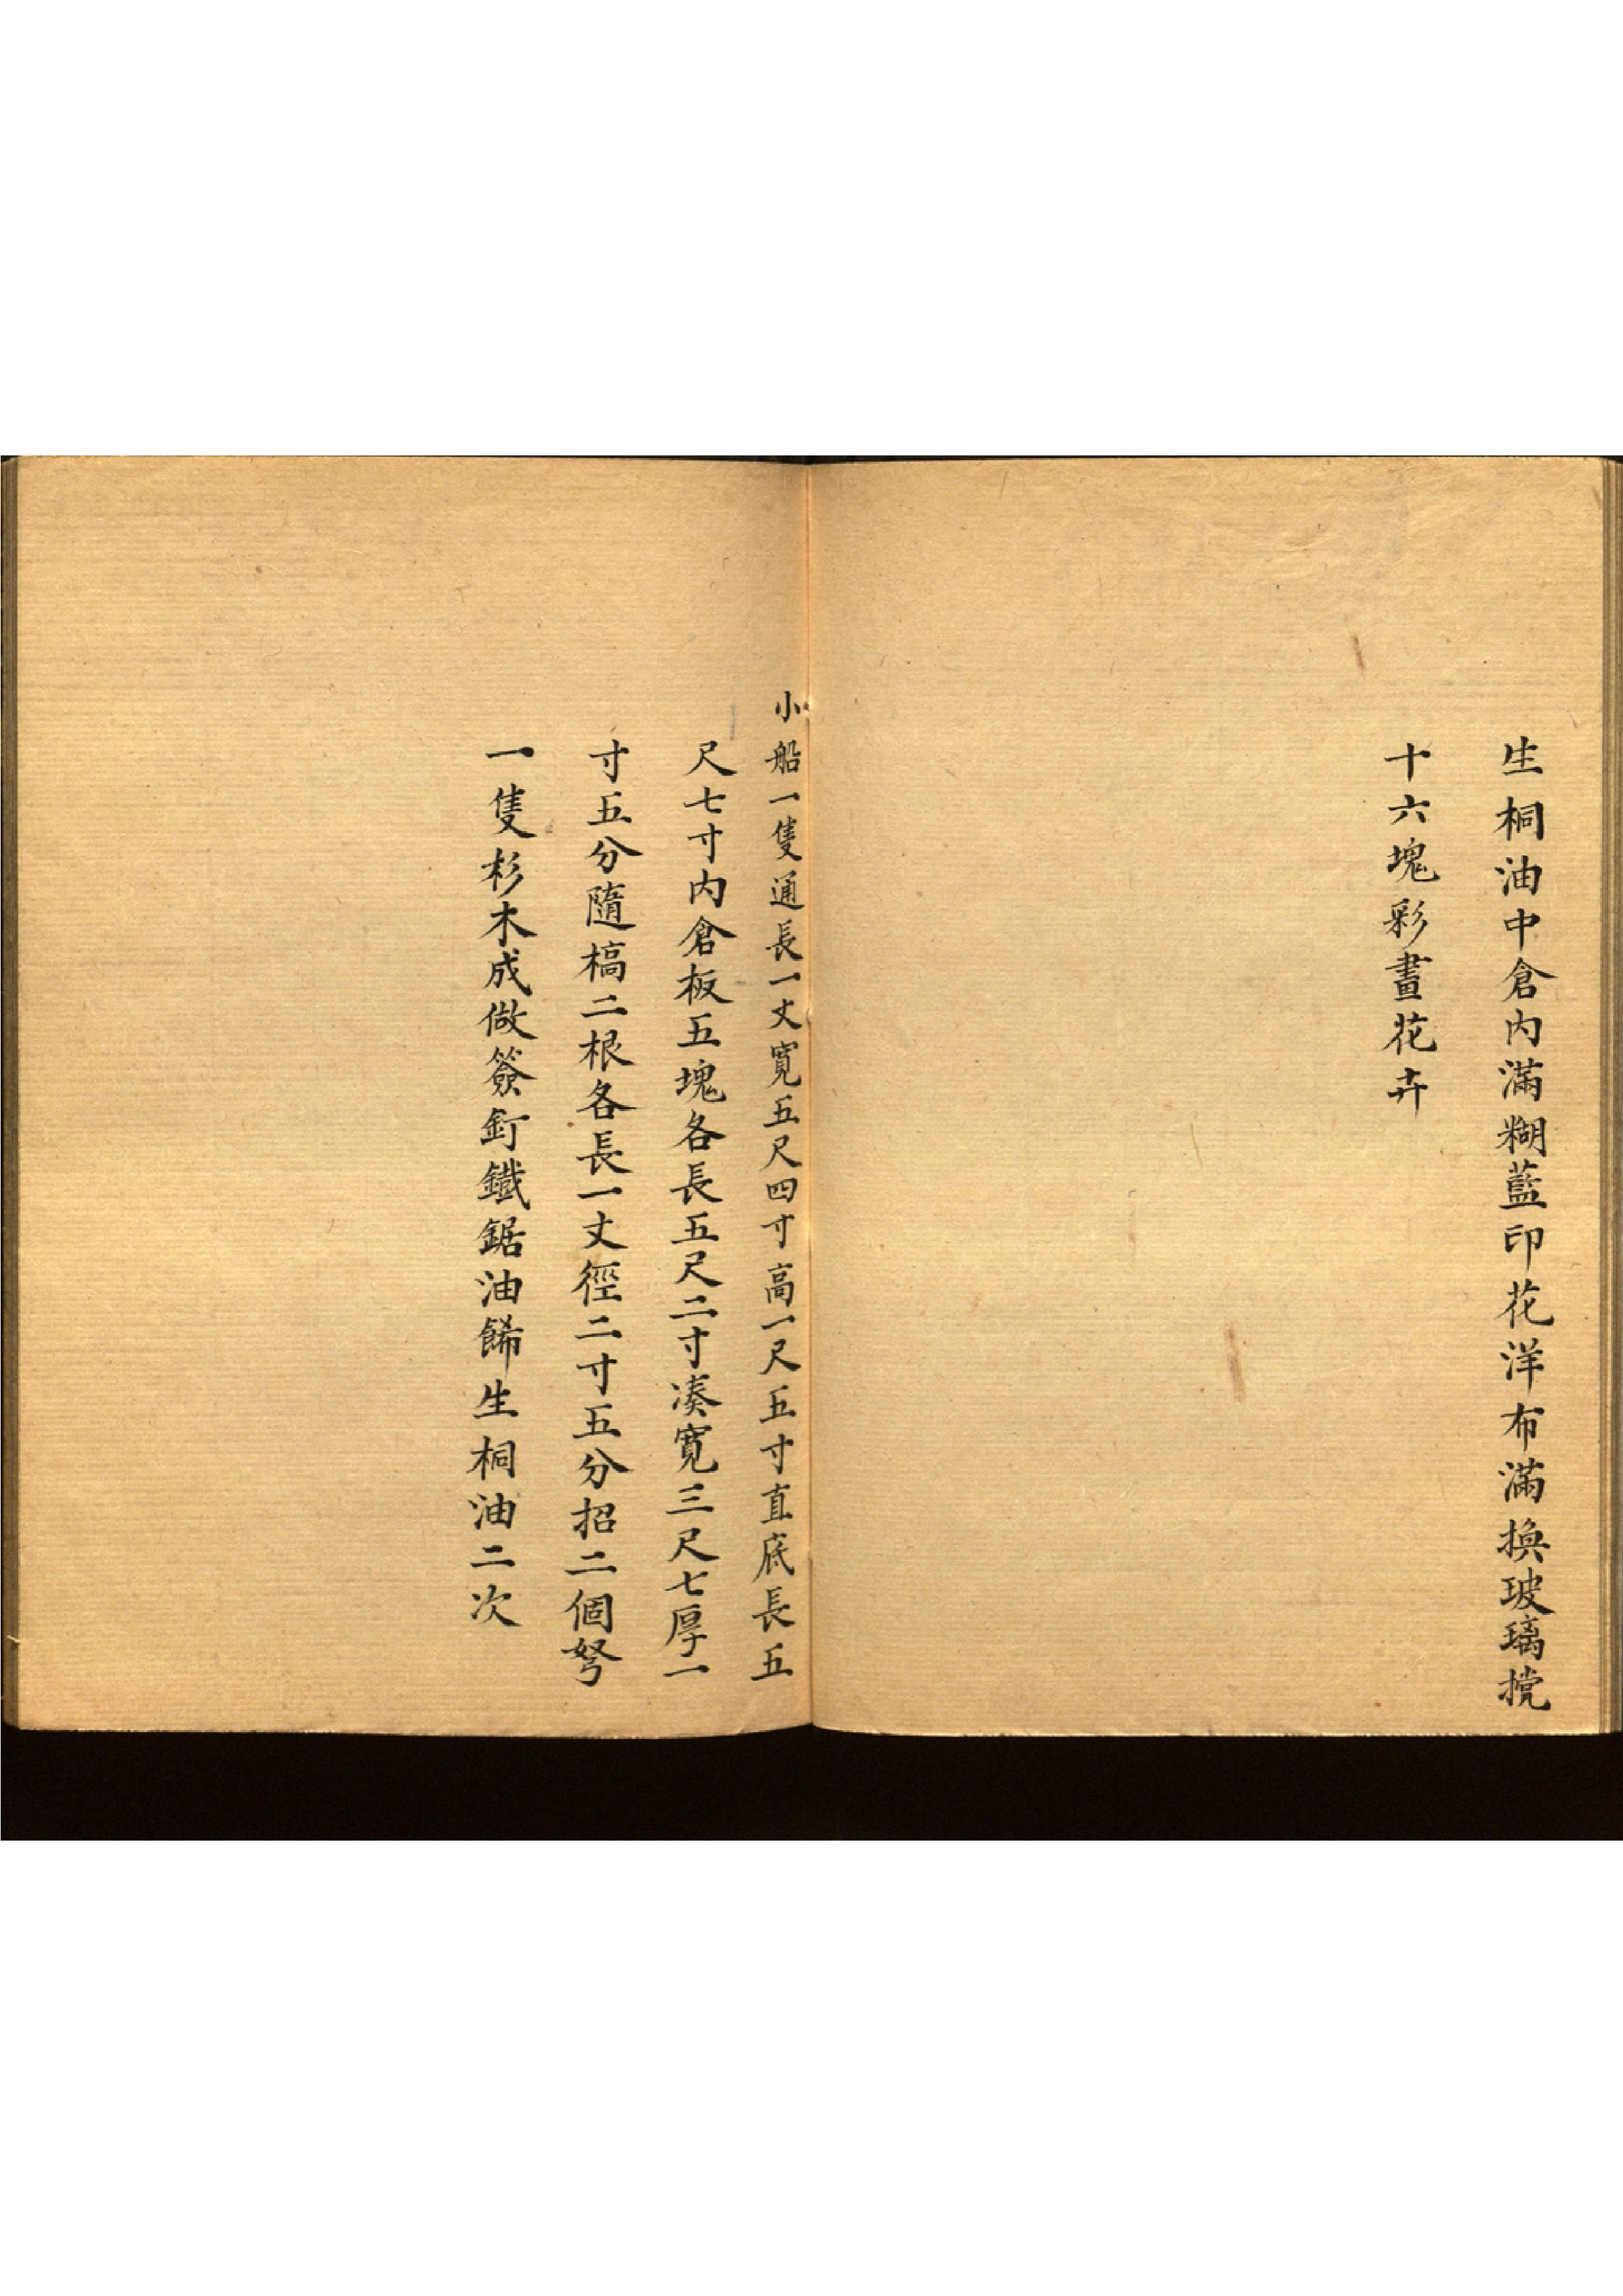 生桐油中倉内滿糊藍印花洋布滿換玻璃㨪
十六塊彩畫花卉
小船一隻通長一丈寬五尺四寸高一尺五寸直底長五
尺七寸内倉板五塊各長五尺二寸凑寬三尺七厚一
寸五分隨槁二根各長一丈徑二寸五分招二個弩
一隻杉木成做簽釘鐵鋸油餙生桐油二次